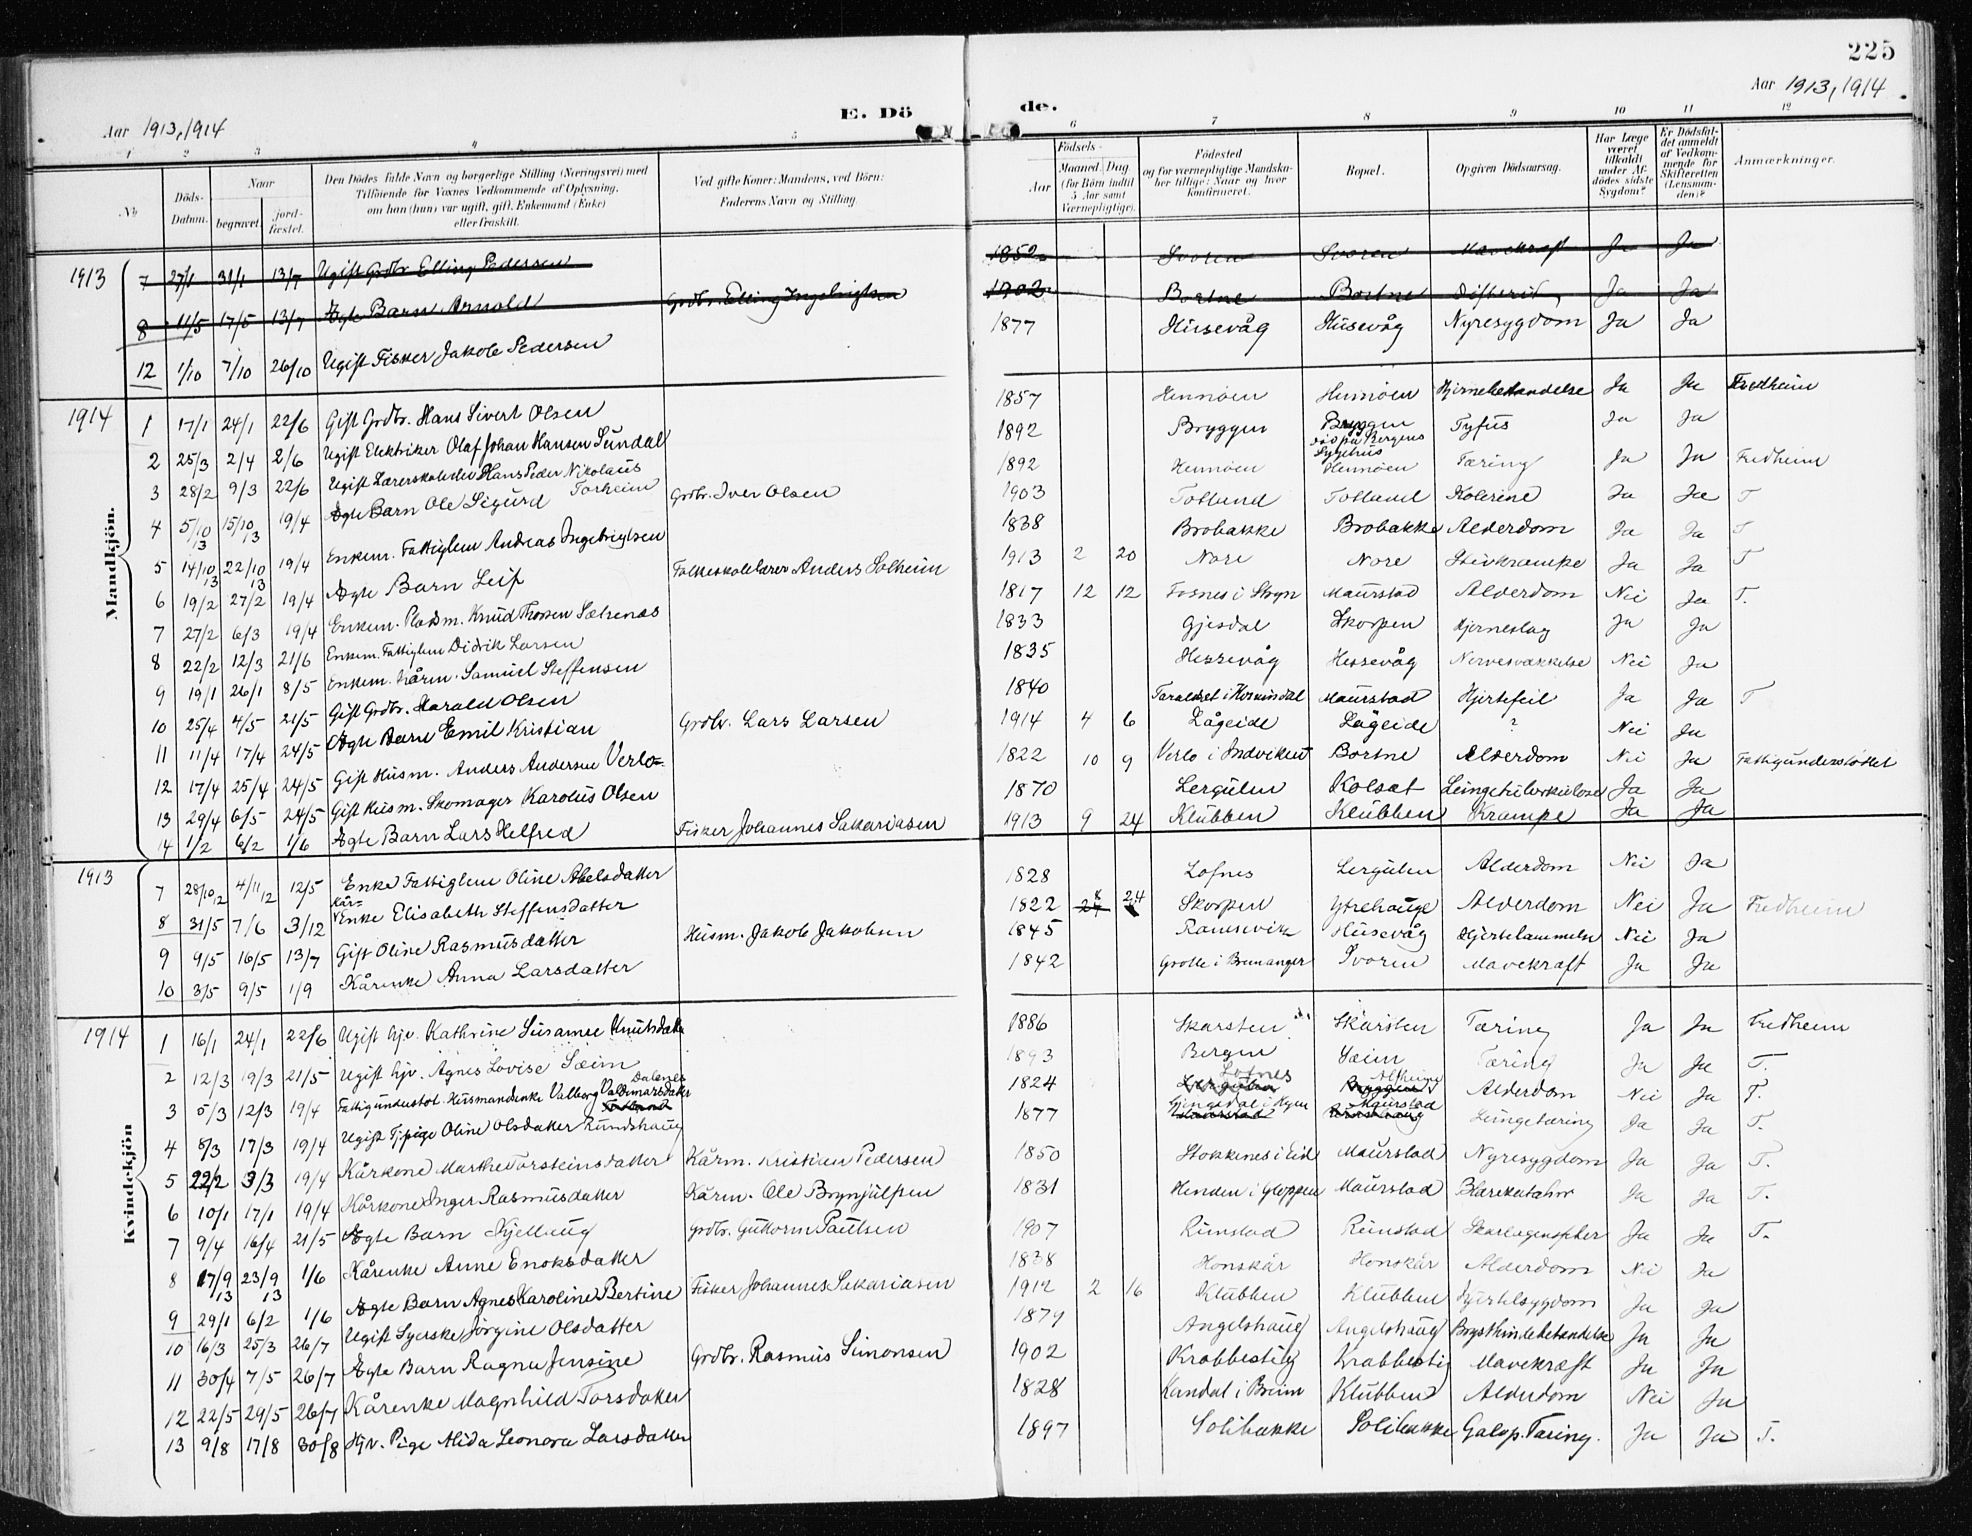 225
Aar 1913, 1914
E. Dö
de.
Aar 1913, 1914
1 2 3 4 5 6 7 8 9 10 11 12
No
Döds-Datum.
Naar
begravet.
jord-fæstet.
Den Dödes fulde Navn og borgerlige Stilling (Næringsvei) med Tilföiende for Voxnes Vedkommende af Oplysning, om han (hun) var ugift, gift, Enkemand (Enke) eller fraskilt.
Ved gifte Koner: Mandens, ved Börn: Faderens Navn og Stilling.
Födsels-
Aar
Maaned. Dag.
(for Börn indtil 5 Aar samt Værnepligtige).
Födested og for værnepligtige Mandska-ber tillige: Naar og hvor konfirmeret.
Bopæl.
Opgiven Dödsaarsag.
Har Læge været tilkaldt under Af-dödes sidste Sygdom?
Er Dödsfal-det anmeldt af Vedkom-mende for Skifteretten (Lensman-den)?
Anmærkninger.
Mandkjön.
1913
7 27/1 31/1 13/7 Ugift Grdbr. Elling Pedersen 1852 Svoren Svoren Mavekræft Ja Ja
8 11/5 17/5 13/7 Ægte Barn Arnold Grdbr. Elling Ingebrigtsen 1902 Bortne Bortne Difterit Ja Ja
12 1/10 7/10 26/10 Ugift Fisker Jakob Pedersen 1877 Husevåg Husevåg Nyresygdom Ja Ja
1914
1 17/1 24/1 22/6 Gift Grdbr. Hans Sivert Olsen 1857 Hennöen Hennöen Hjernebetændelse Ja Ja Fredheim
2 25/3 2/4 2/6 Ugift Elektriker Olaf Johan Hansen Sundal 1892 Bryggen Bryggen död på Bergens Sygehus Tyfus Ja Ja
3 28/2 9/3 22/6 Ugift Lærerskoleelev Hans Peder Nikolaus Torheim 1892 Hennöen Hennöen Tæring Ja Ja Fredheim
4 5/10 13 15/10 13 19/4 Ægte Barn Ole Sigurd Grdbr. Iver Olsen 1903 Totland Totland Kolerine Ja Ja T
5 14/10 13 22/10 13 19/4 Enkem. Fattiglem Andreas Ingebrigtsen 1838 Brobakke Brobakke Alderdom Ja Ja T
6 19/2 27/2 19/4 Ægte Barn Leif Folkeskolelærer Anders Solheim 1913 2 20 Nore Nore Stivkrampe Ja Ja T
7 27/2 6/3 19/4 Enkem. Pladsm. Knud Thosen Sætrenes 1817 12 12 Fosnes i Stryn Maurstad Alderdom Nei Ja T.
8 22/2 12/3 21/6 Enkem. Fattiglem Didrik Larsen 1833 Gjesdal Skorpen Hjerneslag Ja Ja
9 19/1 26/1 8/5 Enkem. Kårm. Samuel Steffensen 1835 Hessevåg Hessevåg Nervesvækkelse Nei Ja
10 25/4 4/5 21/5 Gift Grdbr. Harald Olsen 1840 Taraldset i Hornindal Maurstad Hjertefeil Ja Ja T
11 11/4 17/4 24/5 Ægte Barn Emil Kristian Grdbr. Lars Larsen 1914 4 6 Lågeide Lågeide ? Nei Ja
12 17/4 25/4 24/5 Gift Husm. Anders Andersen Verlo 1822 10 9 Verlo i Indviken Bortne Alderdom Nei Ja Fattigunderstöttet
13 29/4 6/5 24/5 Gift Husm. Skomager Karolus Olsen 1870 Lergulen Kolset Lungetuberkulose Ja Ja
14 1/2 6/2 1/6 Ægte Barn Lars Helfred Fisker Johannes Sakariasen 1913 9 24 Klubben Klubben Krampe Ja Ja
Kvindekjön
1913
7 28/10 12 4/11 12 12/5 Enke Fattiglem Oline Abelsdatter 1828 Lofnes Lergulen Alderdom Nei Ja
8 31/5 7/6 3/12 Kår-Enke Elisabeth Steffensdatter 1822 8 24 Skorpen Ytrehauge Alderdom Nei Ja Fredheim
9 9/5 16/5 13/7 Gift Oline Rasmusdatter Husm. Jakob Jakobsen 1845 Ramsevik Husevåg Hjertelammelse Nei Ja
10 3/5 9/5 1/9 Kårenke Anna Larsdatter 1842 Grotle i Bremanger Svoren Mavekræft Ja Ja
1914
1 16/1 24/1 22/6 Ugift hjv. Kathrine Susanne Knutsdatter 1886 Skarsten Skarsten Tæring Ja Ja Fredheim
2 12/3 19/3 21/5 Ugift hjv. Agnes Lovise Sæim 1893 Bergen Sæim Tæring Ja Ja T.
3 5/3 12/3 19/4 Fattigunderstöt. Husmandenke Valborg Valdemarsdatter Dalenes Totland 1824 Lofnes Lergulen Bryggen Alfheim Alderdom Nei Ja T.
4 8/3 17/3 19/4 Ugift Tj. pige Oline Olsdatter Rundshaug 1877 Maurstad Maurstad Rundshaug Lungetæring Ja Ja T.
5 22/2 3/3 19/4 Kårkone Marthe Torsteinsdatter Kårm. Kristian Pedersen 1850 Stokkenes i Eid Maurstad Nyresygdom Ja Ja T.
6 10/1 17/1 19/4 Kårkone Inger Rasmusdatter Kårm. Ole Brynjulfsen 1831 Henden i Gloppen Maurstad Blærekatahr Ja Ja T.
7 9/4 16/4 21/5 Ægte Barn Kjellaug Grdbr. Guttorm Paulsen 1907 Rimstad Rimstad Skarlagensfeber Ja Ja T.
8 17/9 13 23/9 13 1/6 Kårenke Anne Enoksdatter 1838 Honskår Honskår Alderdom Nei Ja
9 29/1 6/2 1/6 Ægte Barn Agnes Karoline Bertine Fisker Johannes Sakariasen 1912 2 16 Klubben Klubben Kjertelsygdom Ja Ja
10 16/3 25/3 26/7 Ugift Syerske Jörgine Olsdatter 1879 Angelshaug Angelshaug Brysthindebetændelse Ja Ja
11 30/4 7/5 26/7 Ægte Barn Ragna Jensine Grdbr. Rasmus Simonsen 1902 Krabbestig Krabbestig Mavekræft Ja Ja
12 22/5 29/5 26/7 Kårenke Magnhild Torsdatter 1828 Kandal i Breim Klubben Alderdom Nei Ja
13 9/8 17/8 30/8 Hjv. Pige Alida Leonora Larsdatter 1897 Solibakke Solibakke Galop. Tæring. Ja Ja T.